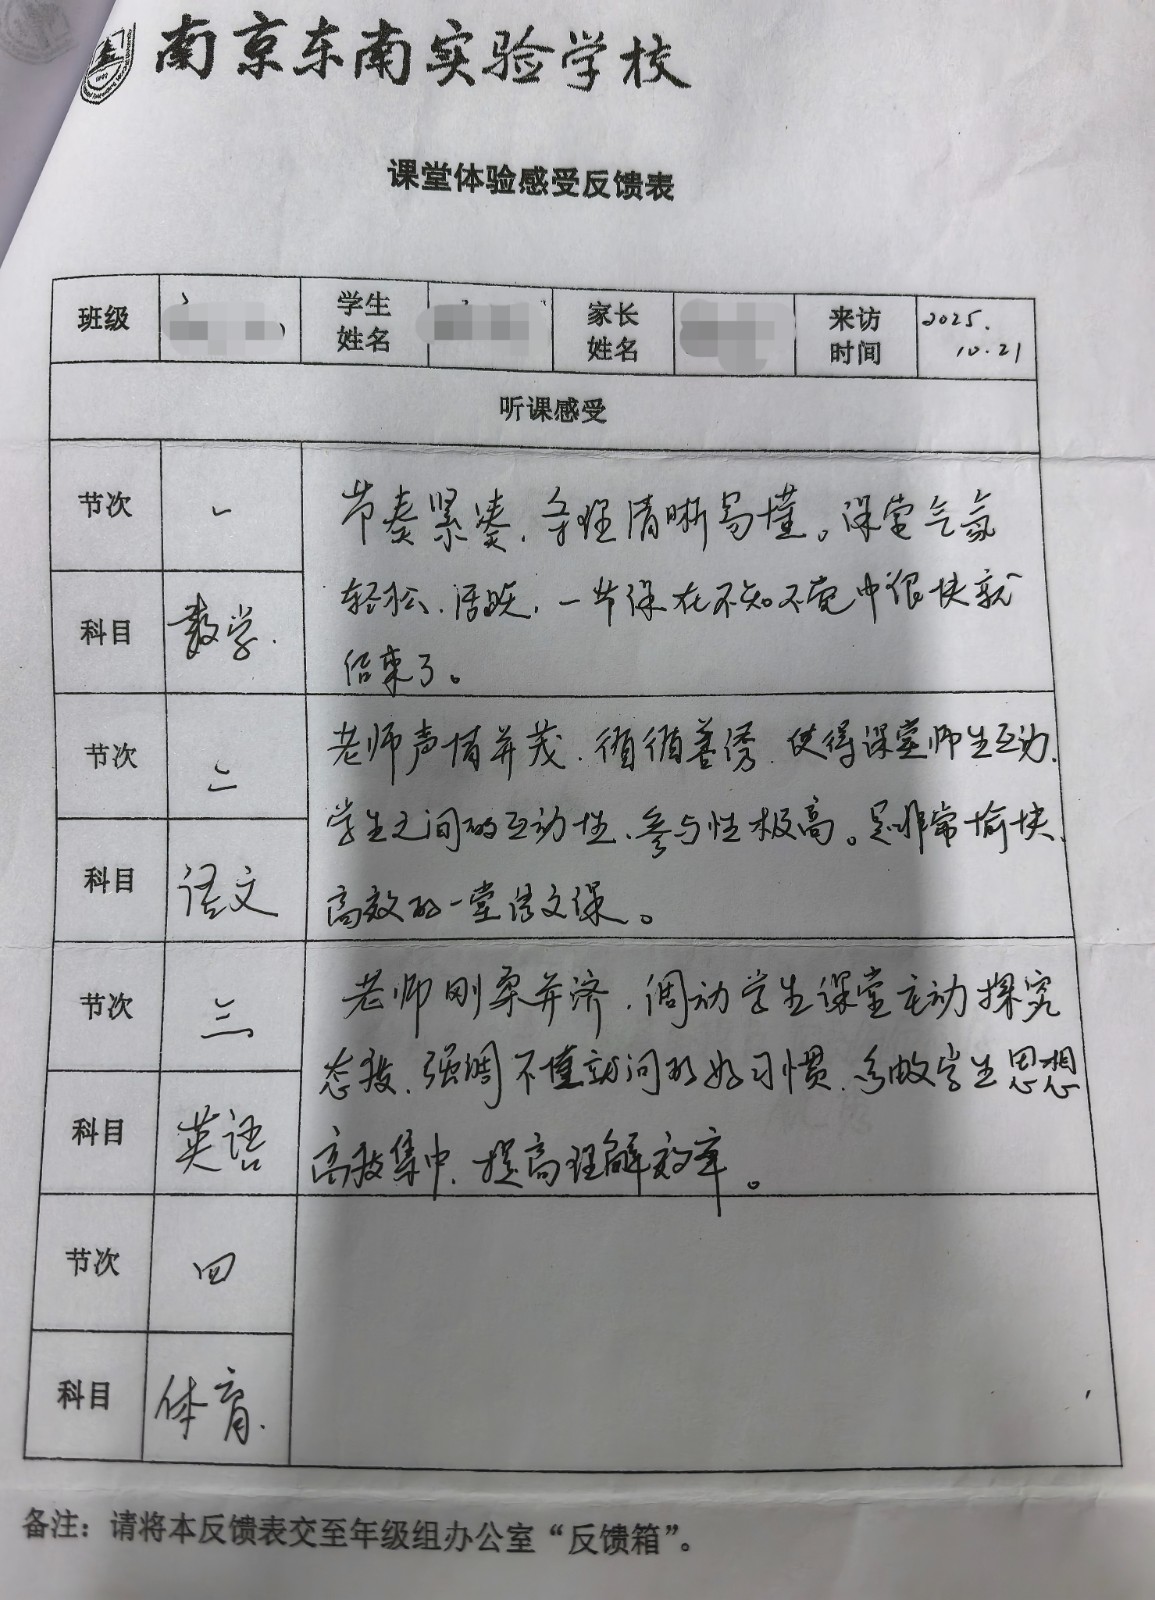 南京东南实验学校
课堂体验感受反馈表
班级 学生姓名 家长姓名 来访时间 2025.10.21
听课感受
节次 一
科目 数学.
节奏紧凑,条理清晰易懂。课堂气氛
轻松、活跃,一节课在不知不觉中很快就
结束了。
节次 二
科目 语文
老师声情并茂、循循善诱、使得课堂师生互动、
学生之间的互动性、参与性极高。是非常愉快、
高效的一堂语文课。
节次 三
科目 英语
老师刚柔并济,调动学生课堂主动探究
态度、强调不懂就问的好习惯、学生思想
高度集中、提高理解效率。
节次 四
科目 体育.
备注：请将本反馈表交至年级组办公室“反馈箱”。